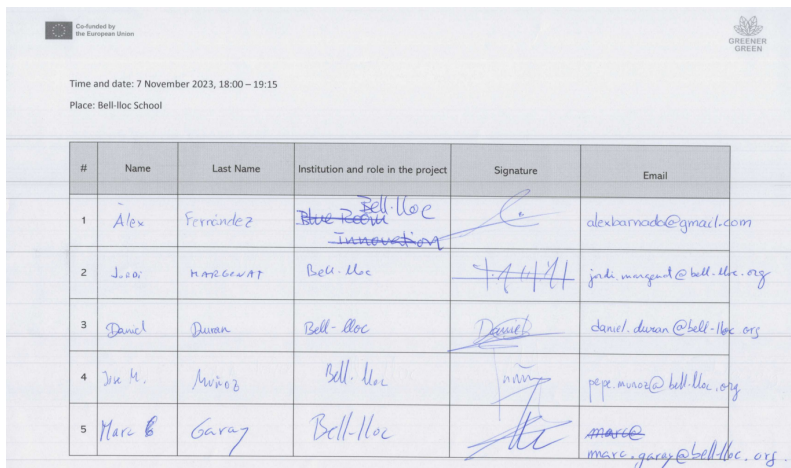 Co-funded by
the European Union
GREENER
GREEN
Time and date: 7 November 2023, 18:00 – 19:15
Place: Bell-lloc School
# Name Last Name Institution and role in the project Signature Email
Bell-lloc
1 Àlex Fernández Blue Room alexbarnada@gmail.com
Innovation
2 Jordi MARGENAT Bell-lloc jordi.margenat@bell-lloc.org
3 Daniel Duran Bell-lloc Daniel daniel.duran@bell-lloc.org
4 Jose M. Muñoz Bell-lloc pepe.munoz@bell-lloc.org
5 Marc Garay Bell-lloc marc@
marc.garay@bell-lloc.org.